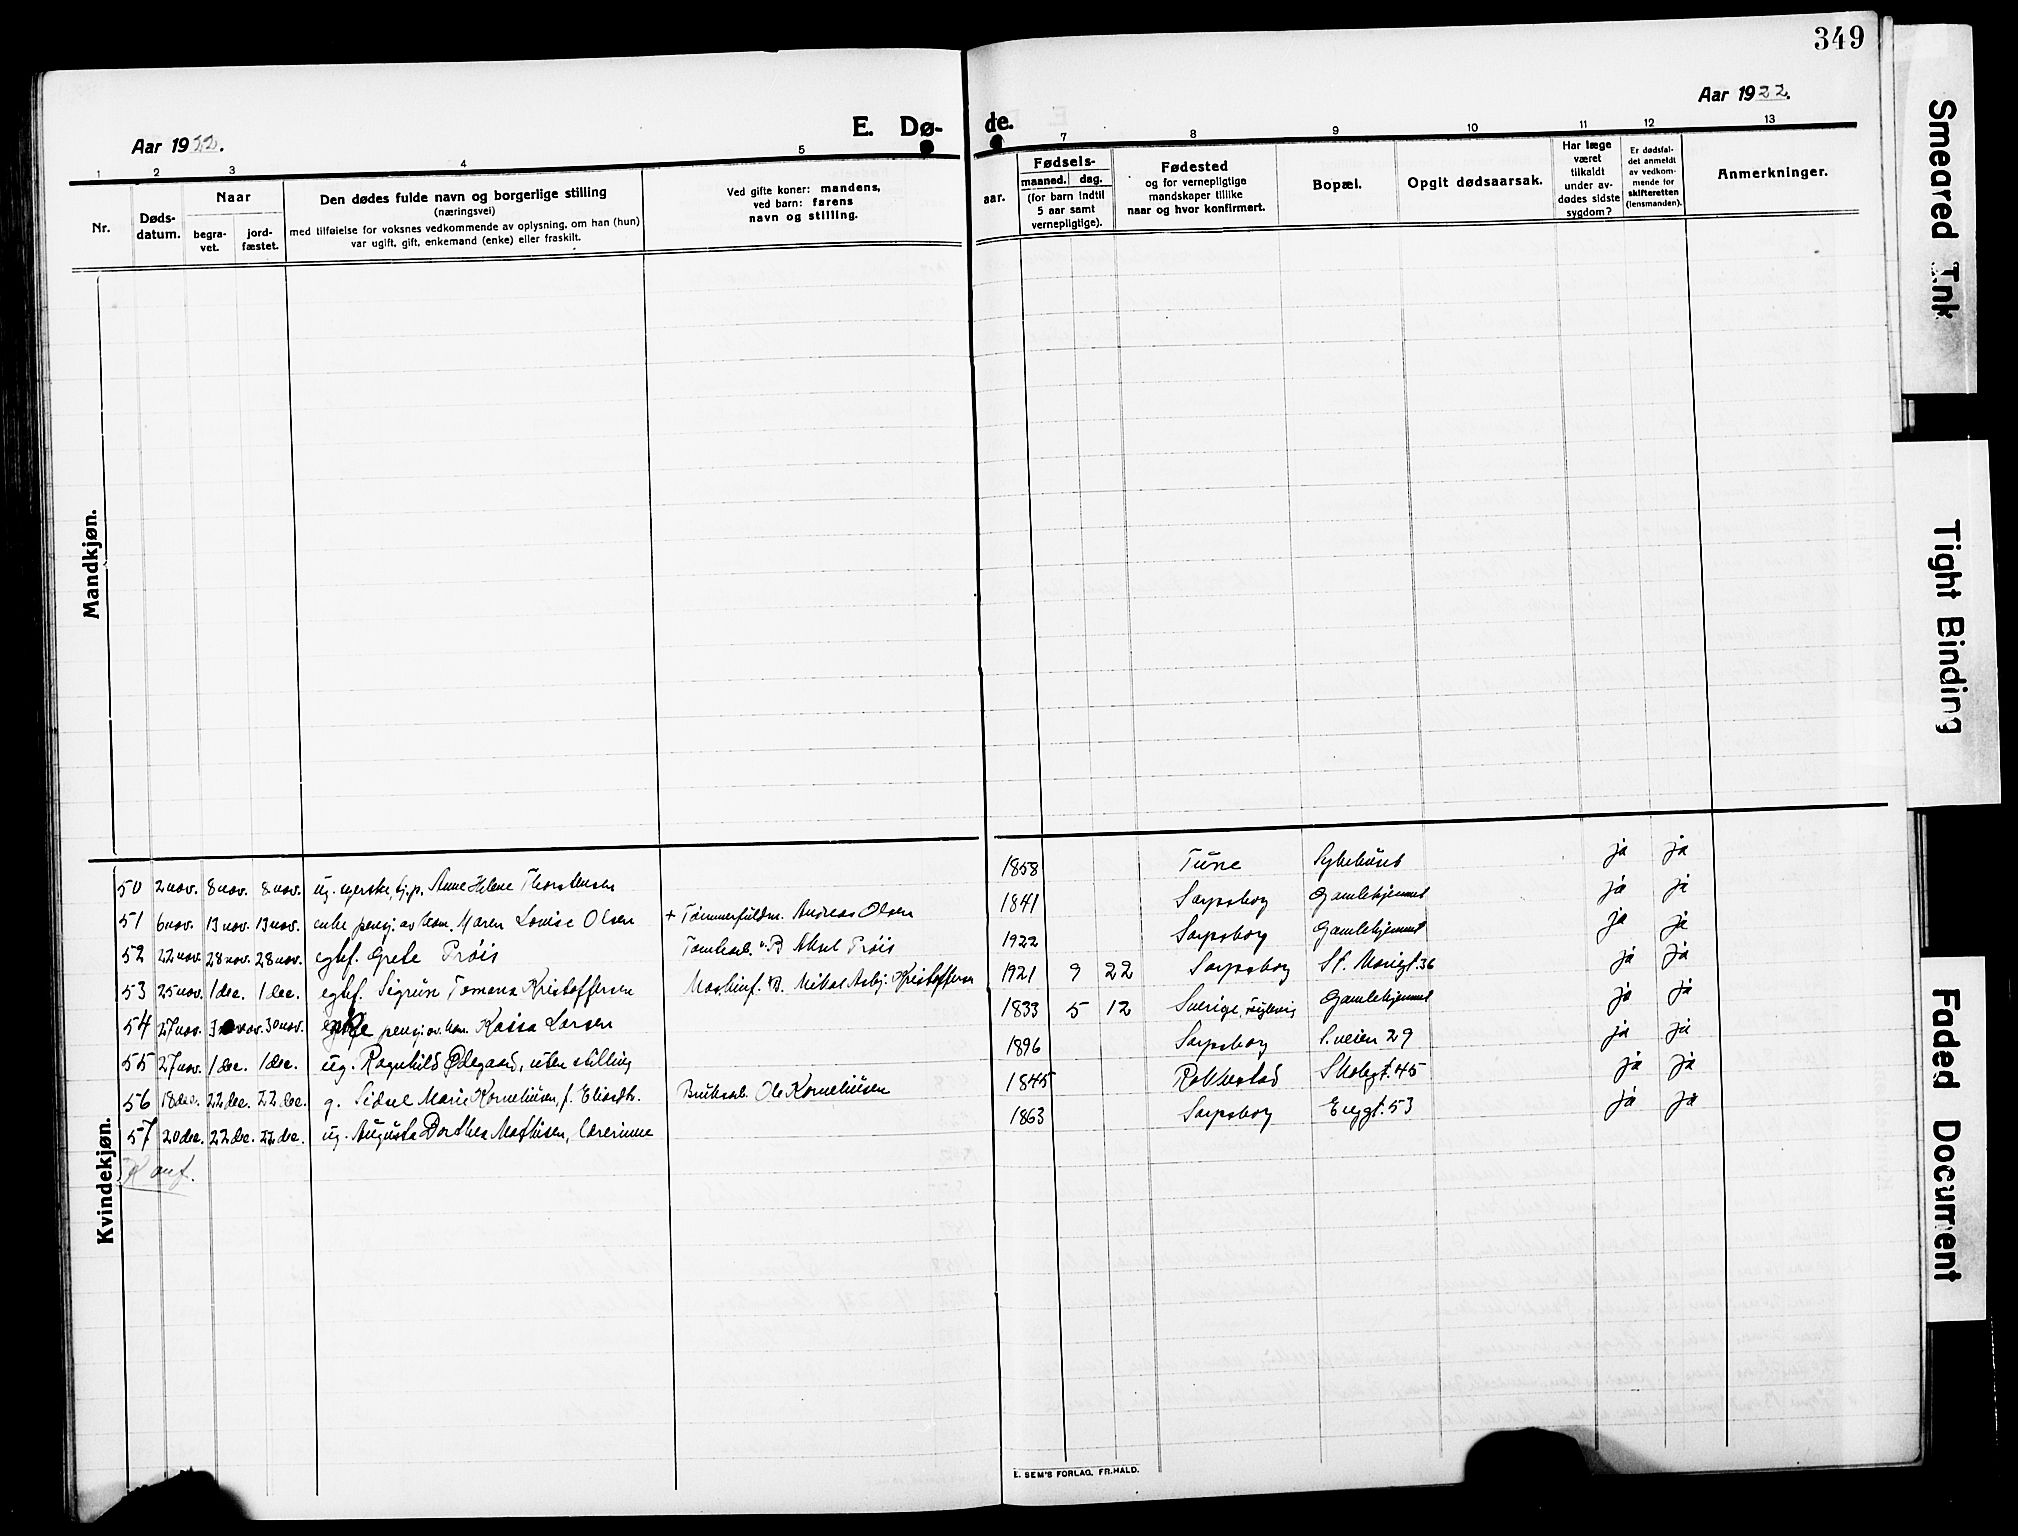 349
Aar 1922.
E. Dø-
de.
Aar 1922.
1 2 3 4 5
7 8 9 10 11 12 13
Nr.
Døds-
datum.
Naar
begra-
vet.
jord-
fæstet.
Den dødes fulde navn og borgerlige stilling
(næringsvei)
med tilføielse for voksnes vedkommende av oplysning, om han (hun)
var ugift, gift, enkemand (enke) eller fraskilt.
Ved gifte koner: mandens,
ved barn: farens
navn og stilling.
aar.
Fødsels-
maaned. dag.
(for barn indtil
5 aar samt
vernepligtige).
Fødested
og for vernepligtige
mandskaper tillike
naar og hvor konfirmert.
Bopæl.
Opgit dødsaarsak.
Har læge
været
tilkaldt
under av-
dødes sidste
sygdom?
Er dødsfal-
det anmeldt
av vedkom-
mende for
skifteretten
(lensmanden).
Anmerkninger.
Mandkjøn.
Kvindekjøn.
50 2 nov. 8 nov. 8 nov. ug. Anne Helene Thorstensen 1858 Tune Sykehuset ja ja
51 6 nov. 13 nov. 13 nov. enke pensj. av kom. Maren Lovise Olsen + Tømmerfuldm. Andreas Olsen 1841 Sarpsborg Gamlehjemmet ja ja
52 22 nov. 28 nov. 28 nov. egtef. Grete Prøis Tomtearb. Aksel Prøis 1922 Sarpsborg Gamlehjemmet ja ja
53 25 nov. 1 dec. 1 dec. egtef. Sigrun Tomena Kristoffersen Maskinf. Nikol Asbj. Kristoffersen 1921 9 22 Sarpsborg St. Mariegt. 36 ja ja
54 27 nov. 30 nov. 30 nov. enke pensj. av kom. Kaisa Larsen 1833 5 12 Sverige, Gamlehjemmet ja ja
55 27 nov. 1 dec. 1 dec. ug. Ragnhild Ødegaard, uten stilling 1896 Sarpsborg S.veien 29 ja ja
56 18 dec. 22 dec. 22 dec. g. Sidsel Marie Korneliusen, f. Eliasdtr. Bruksarb. Ole Korneliusen 1845 Rakkestad Skolegt. 45 ja ja
57 20 dec. 22 dec. 22 dec. ug. Augusta Dorthea Mathisen, lærerinne 1863 Sarpsborg Enggt. 53 ja ja
K. anf.
E. SEM'S FORLAG, FR.HALD.
Smeared Ink
Tight Binding
Faded Document